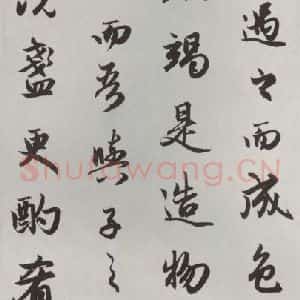 遇之而成色
竭是造物
而吾與子之
洗盞更酌肴
Shufawang.CN